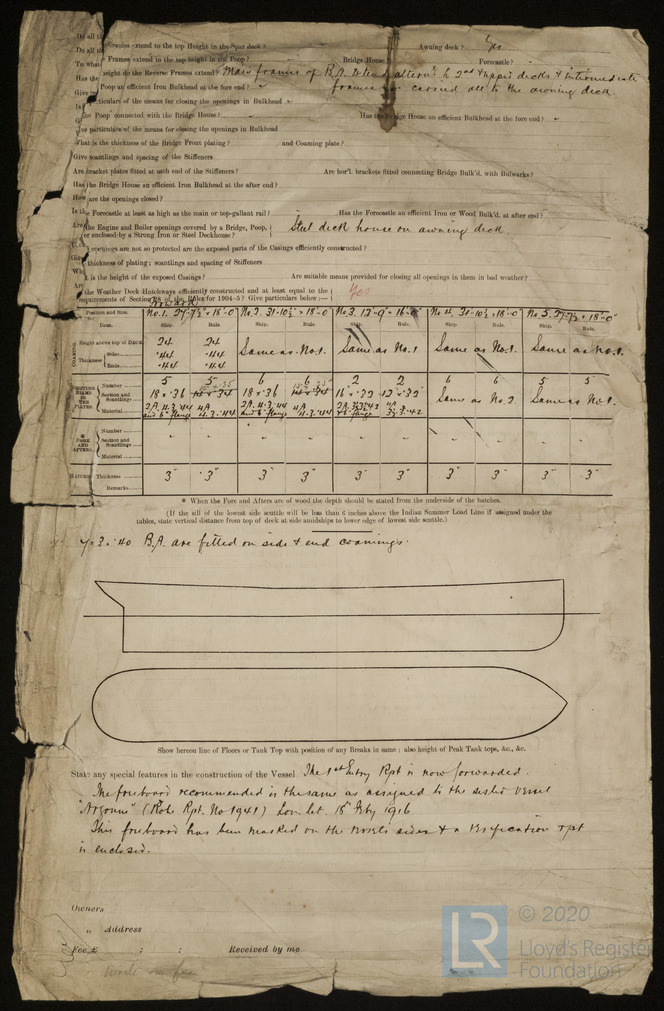 Do all t
Frames extend to the top Height in the Spar deck? Awning deck? Yes
Do all t
Frames extend to the top height in its Poop? Bridge House Forecastle?
To what
height do the Reverse Frames extend? Main frames of B.A. extend altern'ly to 2nd & upper decks & intermediate
Has the
Poop an efficient Iron Bulkhead at the fore end? frames are carried all to the awning deck.
Give
particulars of the means for closing the openings in Bulkhead
Is
the Poop connected with the Bridge House? Has the Bridge House an efficient Bulkhead at the fore end?
Give particulars of the means for closing the openings in Bulkhead
What is the thickness of the Bridge Front plating? and Coaming plate?
Give scantlings and spacing of the Stiffeners
Are bracket plates fitted at each end of the Stiffeners? Are hor'l. brackets fitted connecting Bridge Bulk'd. with Bulwarks?
Has the Bridge House an efficient Iron Bulkhead at the after end?
How are the openings closed?
Is the Forecastle at least as high as the main or top-gallant rail? Has the Forecastle an efficient Iron or Wood Bulk'd. at after end?
Are the Engine and Boiler openings covered by a Bridge, Poop,
or enclosed by a Strong Iron or Steel Deckhouse? Steel deck house on awning deck.
openings are not so protected are the exposed parts of the Casings efficiently constructed?
Give thickness of plating; scantlings and spacing of Stiffeners
What is the height of the exposed Casings? Are suitable means provided for closing all openings in them in bad weather?
Are the Weather Deck Hatchways efficiently constructed and at least equal to the
requirements of Section of the Rules for 1904-5? Give particulars below:— Yes
Forward
Position and Size. No. 1. 27-7½ × 18-0 No. 2. 31-10½ × 18-0 No. 3. 12-9 × 16-0 No. 4. 31-10½ × 18-0 No. 5. 27-7½ × 18-0
Item. Ship. Rule. Ship. Rule. Ship. Rule. Ship. Rule. Ship. Rule.
COAMING Height above top of DECK 24 24
Thickness Sides .44 .44 Same as No. 1. Same as No. 1 Same as No. 1. Same as No. 1.
Ends .44 .44
SHIFTING BEAMS OR WEB PLATES Number 5 5 6 6 2 2 6 6 5 5
Section and Scantlings 18 × .36 18 × .36 16 × .32 12 × .32 Same as No. 2. Same as No. 1.
Material
* FORE AND AFTERS. Number
Section and Scantlings - - - - - - - - - -
Material
HATCHES Thickness 3" 3" 3" 3" 3" 3" 3" 3" 3" 3"
Remarks
* When the Fore and Afters are of wood the depth should be stated from the underside of the hatches.
(If the sill of the lowest side scuttle will be less than 6 inches above the Indian Summer Load Line if assigned under the
tables, state vertical distance from top of deck at side amidships to lower edge of lowest side scuttle.)
7 × 3 × .40 B.A. are fitted on side & end coamings.
Show hereon line of Floors or Tank Top with position of any Breaks in same; also height of Peak Tank tops, &c., &c.
State any special features in the construction of the Vessel The 1st Entry Rpt is now forwarded.
The freeboard recommended is the same as assigned to the sister vessel
(Kobe Rpt. No 1941) Lon. let. 18th Feby 1916.
This freeboard has been marked on the vessel's sides & a verification rpt
is enclosed.
Owners
„ Address
Fee £ : : Received by me
LR © 2020
Lloyd's Register
Foundation